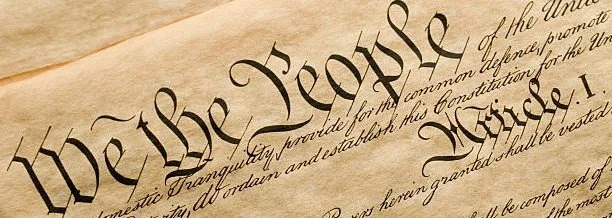 We the People of the Unite
omestic Tranquility, provide for the common defence, promote
do ordain and establish this Constitution for the Un
Article. I.
herein granted shall be vested
ll be composed of
of the most